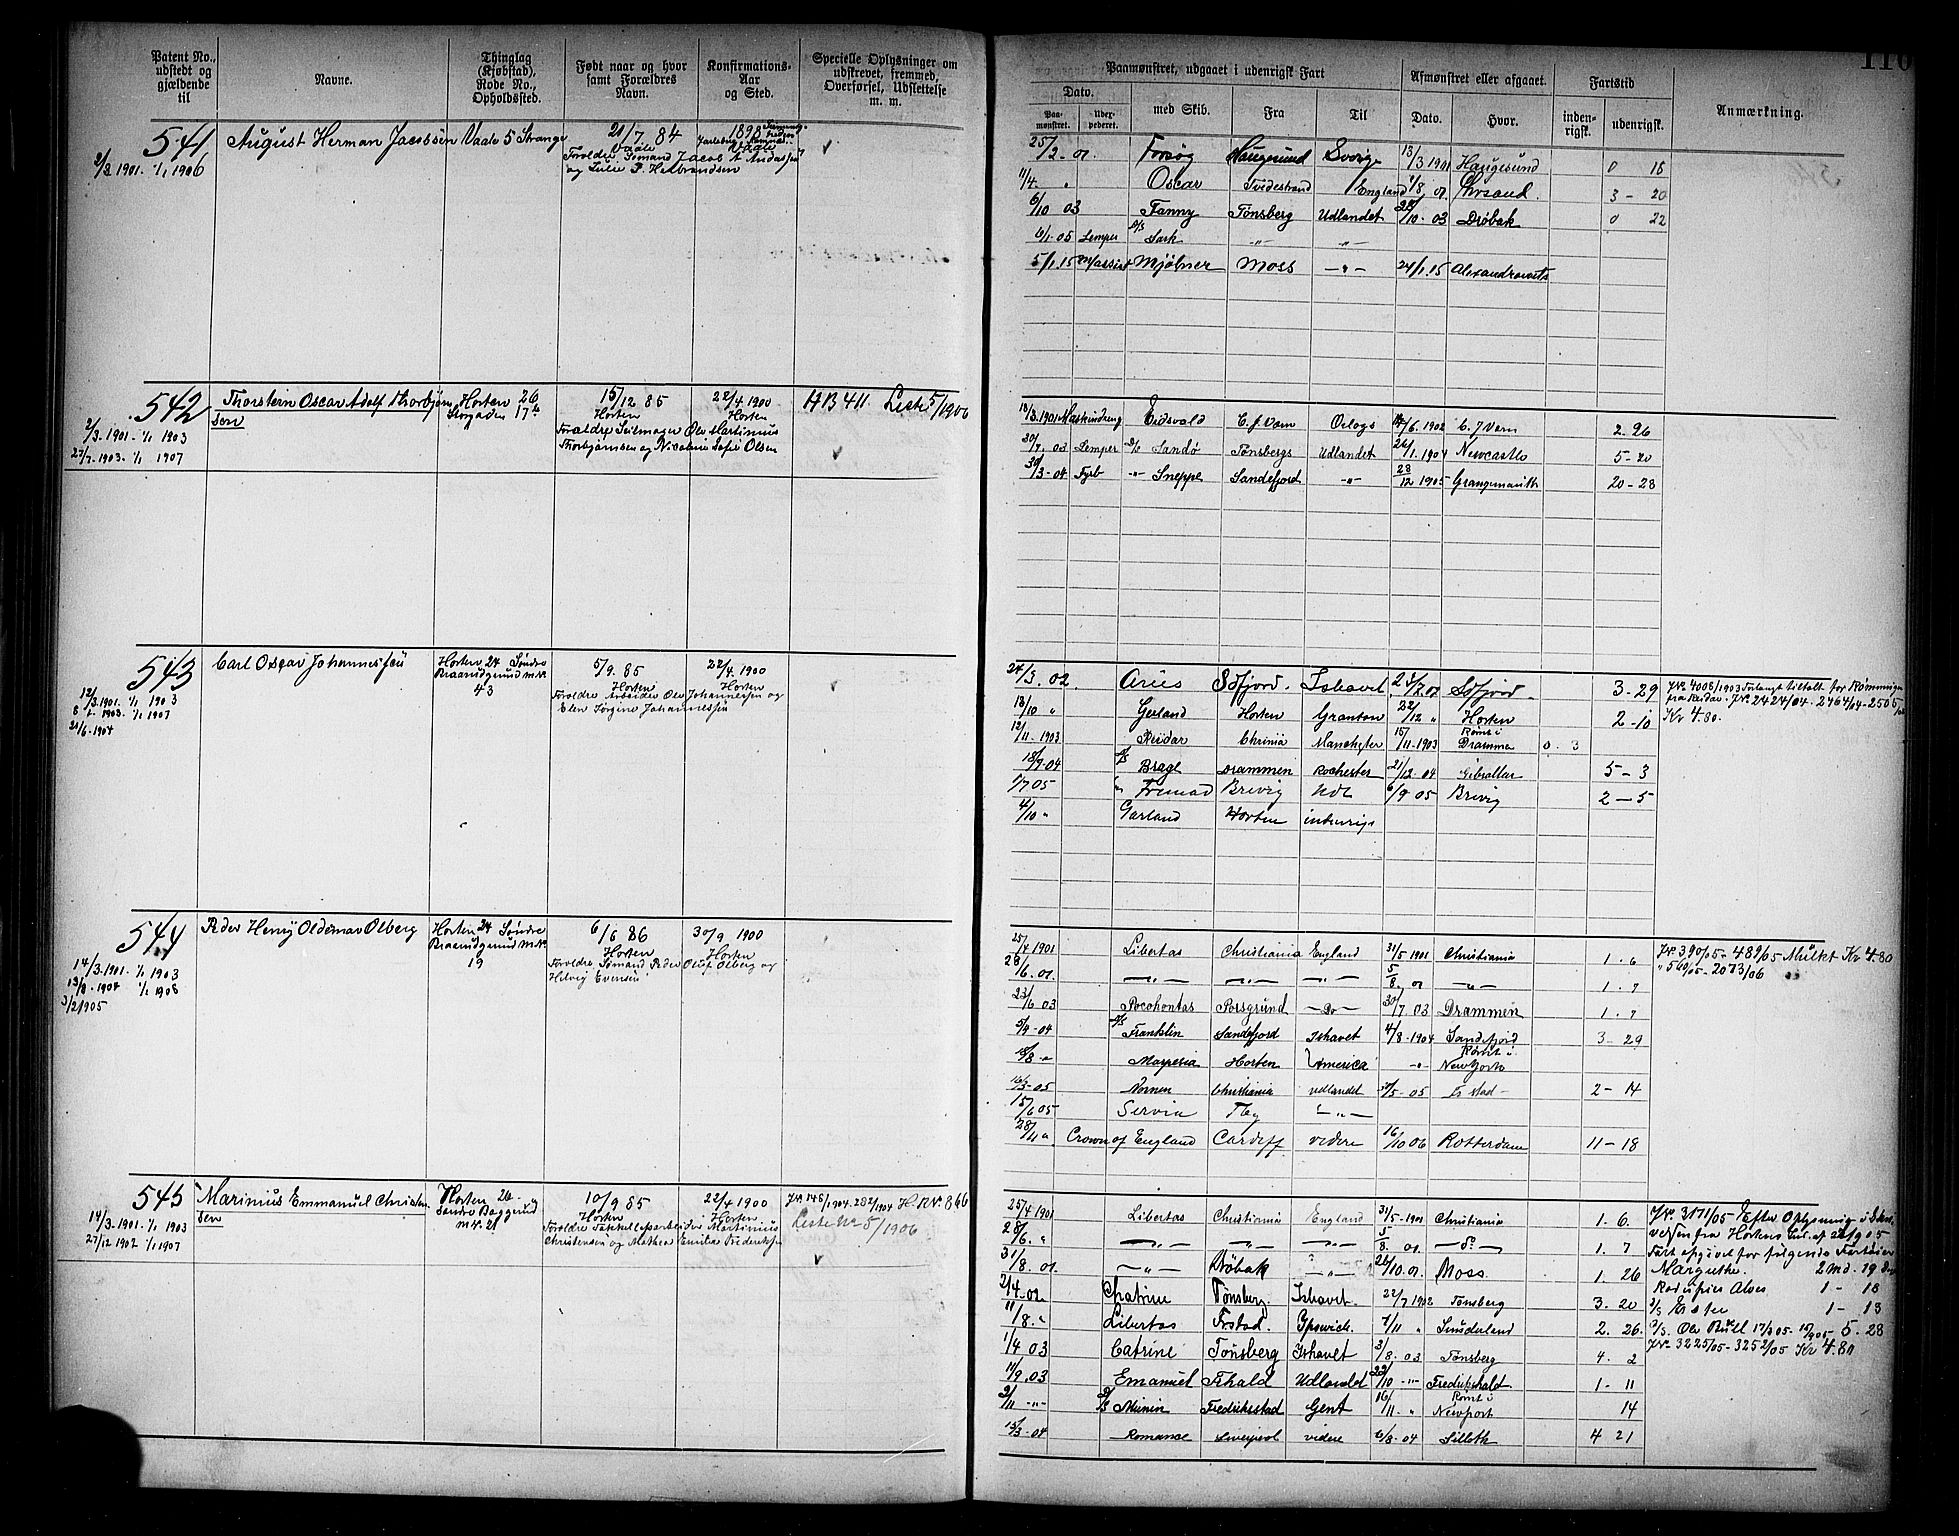 110
Patent No., udstedt og gjældende til
Navne.
Thinglag (Kjøbstad), Rode No., Opholdssted.
Født naar og hvor samt Forældres Navn.
Konfirmations-Aar og Sted.
Specielle Oplysninger om udskrevet, fremmed, Overførsel, Udslettelse m. m.
Paamønstret, udgaaet i udenrigsk Fart
Dato.
Paa-mønstret.
Udex-pederet.
med Skib.
Fra
Til
Afmønstret eller afgaaet.
Dato.
Hvor.
Fartstid
inden-rigsk.
udenrigsk.
Anmærkning.
541
2/3 1901. 1/1 1906
August Herman Jacobsen
Vaale 5 Strange
21/7 84
Vaale
Forældre Sømand Jacob A Andersen
og Lule P. Helbrandsen
1898
Vaale
25/2 - 01. Forsøg Haugesund Sverige 13/3 1901 Haugesund 0 18
11/4 " Oscar Tvedestrand England 1/8 01 Chrsand 3 - 20
6/10 03 Fanny Tønsberg Udlandet 28/10 - 03 Drøbak 0 22
6/1 05 Lemper D/S Sark -"- -"-
5/1 15 M/assist Mjølner Moss -"- 24/1 15
542
2/3-1901-1/1 1903
27/7-1903-1/1 1907
Thorstein Oscar Adolf Thorbjørn
sen
Horten 26
Storgaden 17 b
15/12 85
Horten
Forældre Seilmager Ole Martinius
Thorbjørnsen og Nicoline Sofie Olsen
22/4 1900
Horten
HB 411. Liste 5/1906
13/3 1901 Maskindreng Eidsvold C. J. Vern Orlogs 14/6. 1902 C. J Vern 2-26
30/7. 03 Lemper D/S Sandø Tønsbergs Udlandet 26/1. 1904 Newcastle 5-20
30/3-04 Fyrb -"- Sneppe Sandefjord -"- 28/12 1905 Grangemouth 20-28
543
12/3.1901. 1/1 1903
8/1-1903. 1/1 1907
21/6-1904
Carl Oscar Johannessen
Horten 24 Søndre
Braarudgerud m. N.
43
5/9. 85
Horten
Forældre Arbeider Ole Johannessen og
Elen Jørgine Johannessen
22/4. 1900
Horten
24/3. 02. Arius Sdfjord. Ishavet. 23/7 02 Sdfjord. 3-29
13/10 " Gerland Horten Granton 22/12 " Horten 2-10
12/11-1903 Reidar Chrinia Manchester 15/11-1903 Rømt i Drammen 0. 3
18/9-04 D/S Brage Drammen Rochester 21/12-04 Gibraltar 5-3
1/7 05 " Fremad Brevig Udl 6/9 05 Brevig 2-5
4/10 " Garland Horten indenrigs
J.Nr. 4008/1903 Forlangt tiltalt for Rømming
fra Reidar. J.Nr. 2424/04. 2464/04-2505/04
Kr 4.80.
544
14/3.1901. 1/1 1903
13/8-1904 1/1 1908
3/2 1905
Peder Henry Oldemar Olberg
Horten 24 Søndre
Braarudgerud m. N.
19
6/6 86
Horten
Forældre, Sømand Peder Oluf Olberg og
Helvig Evensen
30/9 1900
Horten
25/4 1901 Libertas Christiania England 31/5-1901 Christiania 1. 6
28/6. 01. -"- -"- -"- 5/8. 01 -"- 1. 7
23/6 03 Pocohontas Porsgrund -Do- 30/7 03 Drammen 1. 7
5/4-04 D/S Franklin Sandefjord Ishavet 4/8-1904 Sandefjord 3-29
18/8-" Marpesia Horten America -"- Rømt i New York
16/3-05 Nornen Christiania udlandet 30/5-05 Frstad 2-14
15/6 05 Servia Tbg -"-
28/11 " Crown of England Cardiff videre 16/10 06 Rotterdam 11-18
J.Nr. 390/05-489/05 Mulkt Kr 4.80
" 560/05-2073/06
545
14/3-1901.-1/1 1903
27/12 1902 1/1 1907
Marinius Emmanuel Christen
sen
Horten 26-
Søndre Baggerud
m. N. 21
10/9 85
Horten
Forældre Fabrikarbeider Martinius
Christensen og Mathea Emilie Frederiksen
22/4 1900
Horten
J.Nr. 148/1904. 282/1904 H. R Nr. 866
Liste No 5/1906
25/4 1901 Libertas Christiania England 31/5-1901 Christiania 1. 6.
28/6. " -"- -"- -"- 5/8. 01. -do- 1. 7
31/8. 01 -"- Drøbak -"- 26/10. 01. Moss. 1. 26
2/4-02 Chatrine Tønsberg. Ishavet. 22/7 1902 Tønsberg 3. 20
11/8. " Libertas Frstad. Ipswich. 7/11 " Sunderland 2. 26.
1/4 03 Catrine Tønsberg Ishavet 3/8. 03 Tønsberg 4. 2
14/9. 03 Emanuel Fhald Udlandet 22/10 -"- Fredrikshald. 1-11
2/11 -"- D/S Munin Fredriksstad Gent 16/11-" Rømt i Newport 14
15/3-04 Romance Liverpool videre 6/8-04 Silloth 4 21
J.Nr. 3171/05 Efter Oplysning i Skri
velsen fra Hortens Lul. af 22/9 05
Fart opgivet for følgende Fartøier
Margrethe. 2 md. 19 Dg
Alves 1-18
D/S Ester 1-13
D/S. Ole Bull 17/3 05-15/9 05-5.28
J.Nr. 3225/05-3252/05 Kr 4.80